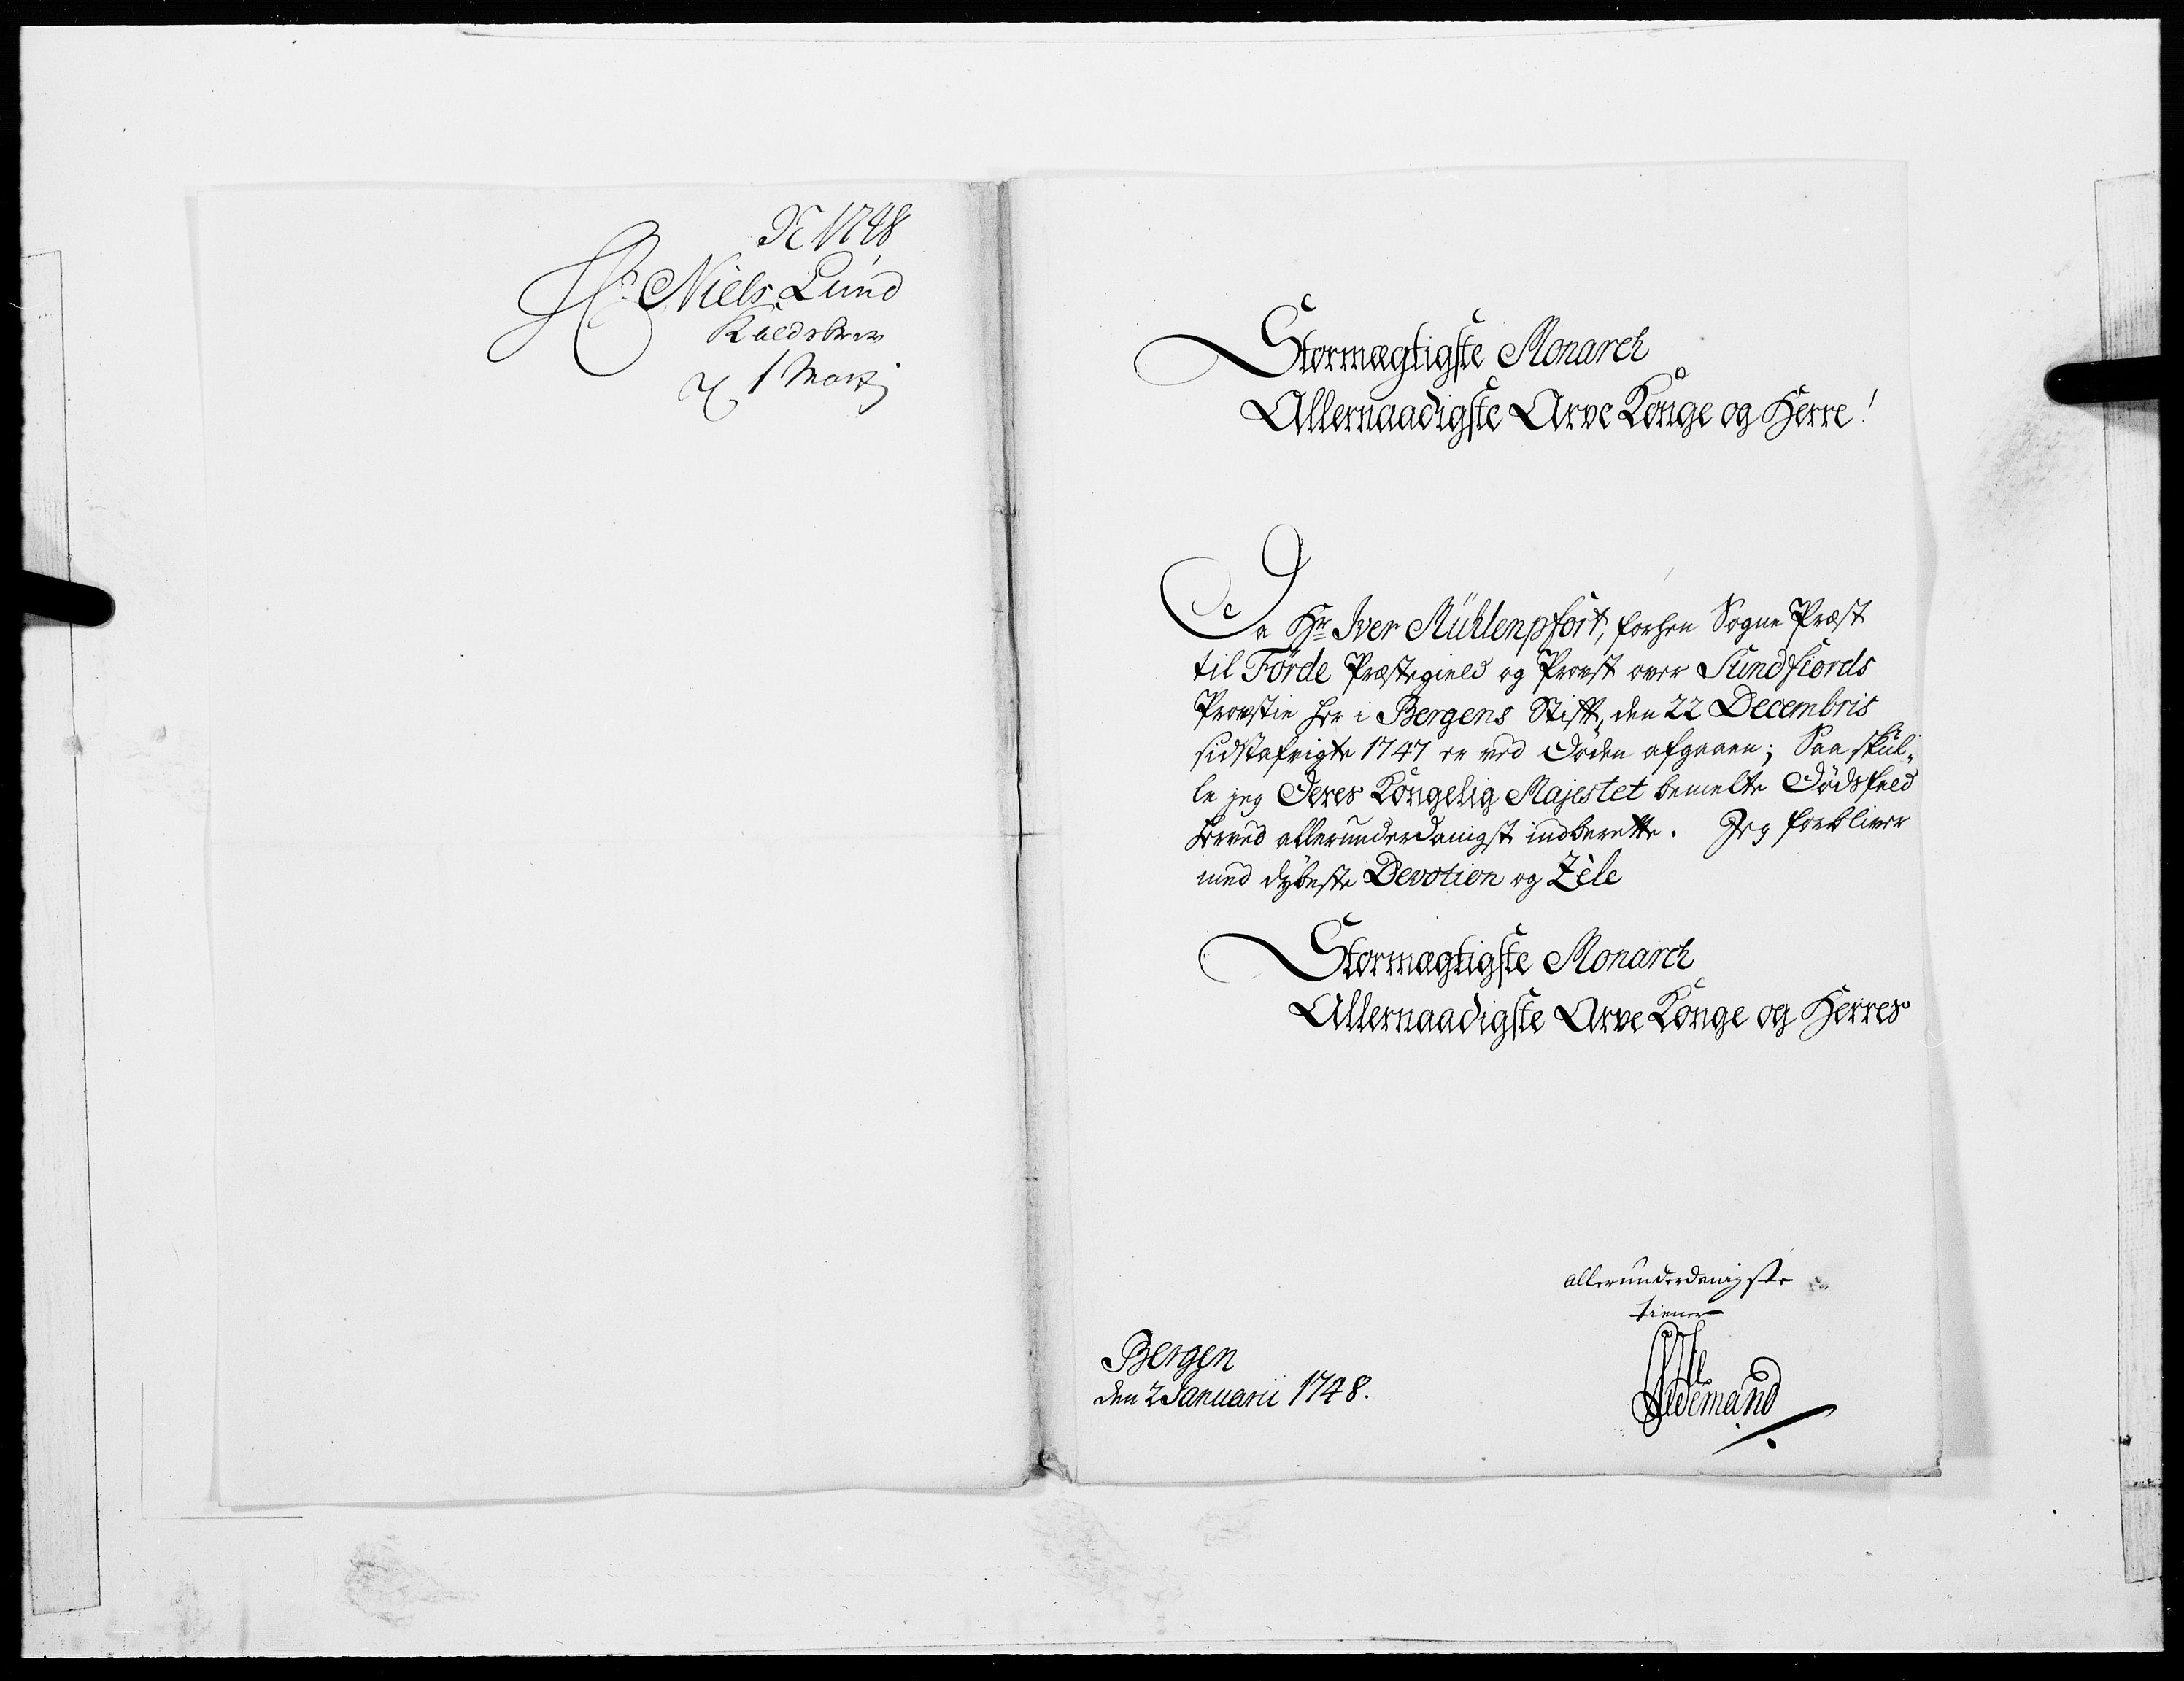 1748
Hr Niels Lund
Kaldsbrev
1 Martj
Stormægtigste Monarch
Allernaadigste Arve Konge og Herre!
Da Hr Iver Mühlenpfort, forhen Sogne Præst
til Förde Præstegield og Provst over Sundfiords
Provstie her i Bergens Stift, den 22 Decembris
sidstafvigte 1747 er ved Døden afgaaen; Saa skul-
le jeg Deres Kongelig Majestet bemelte Dødsfald
herved allerunderdanigst indberette. Jeg forbliver
med dybeste Devotion og Zéle
Stormægtigste Monarch
Allernaadigste Arve Konge og Herres
allerunderdanigste
tiener
Bergen
den 2 Januarii 1748.